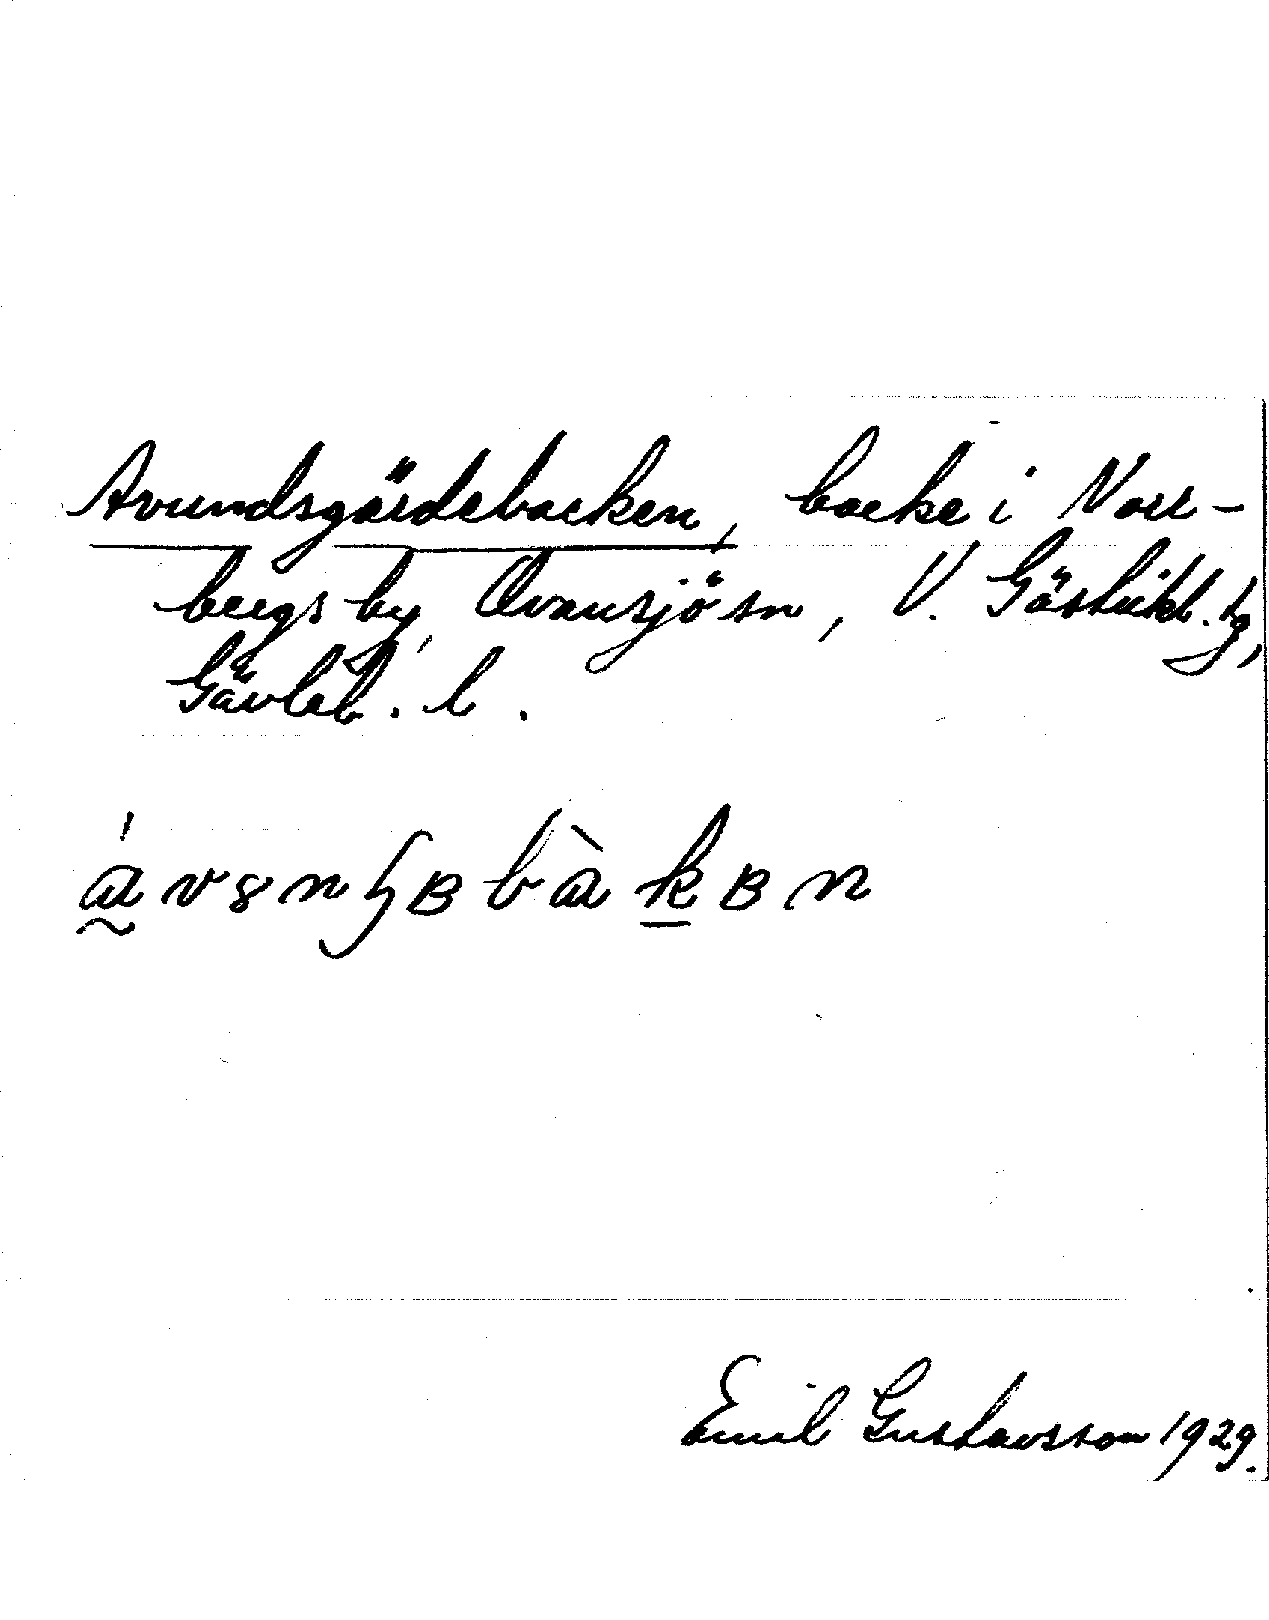 Avundsgärdebacken, backe i Norr-
bergs by, Ovansjö sn, V. Gästrikl. tg,
Gävleb. l.
ávsnɧʙ bàkʙn
Emil Gustavsson 1929.